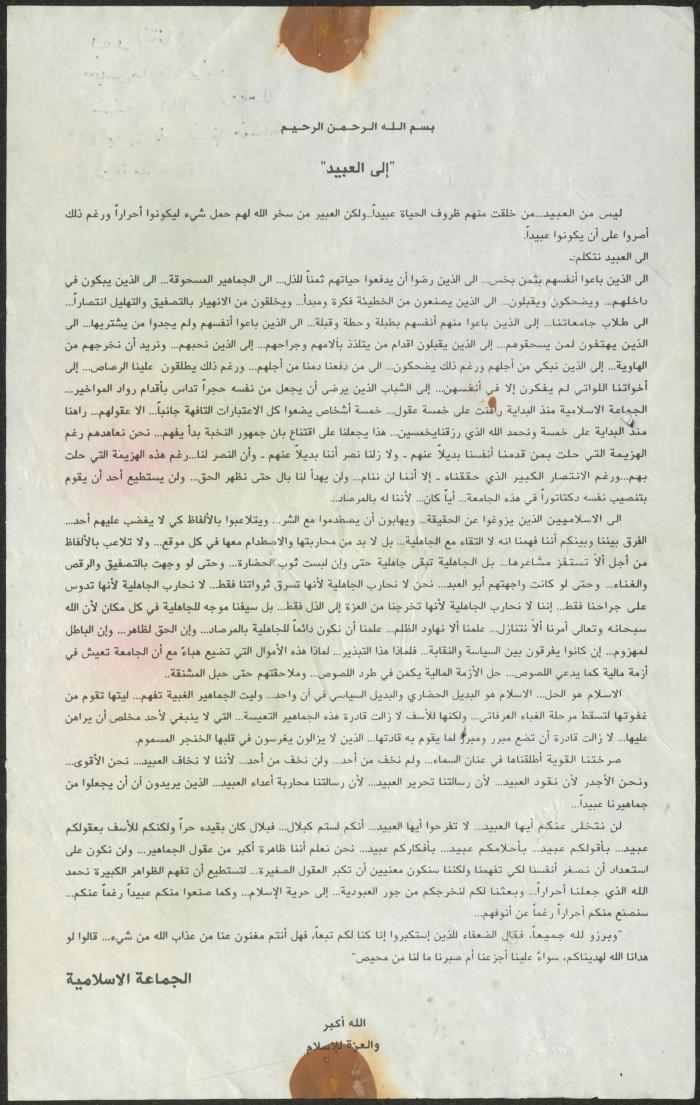 بسم الله الرحمن الرحيم
"إلى العبيد"
ليس من العبيد...من خلقت منهم ظروف الحياة عبيداً..ولكن العبير من سخر الله لهم حمل شيء ليكونوا أحراراً ورغم ذلك
أصروا على أن يكونوا عبيداً.
الى العبيد نتكلم:ـ
الى الذين باعوا أنفسهم بثمن بخس... الى الذين رضوا أن يدفعوا حياتهم ثمناً للذل... الى الجماهير المسحوقة... الى الذين يبكون في
داخلهم... ويضحكون ويقبلون... الى الذين يصنعون من الخطيئة فكرة ومبدأ... ويخلقون من الانهيار بالتصفيق والتهليل انتصاراً...
الى طلاب جامعاتنا... إلى الذين باعوا منهم أنفسهم بطبلة وحطة وقبلة... الى الذين باعوا أنفسهم ولم يجدوا من يشتريها... الى
الذين يهتفون لمن يسحقوهم... إلى الذين يقبلون اقدام من يتلذذ بآلامهم وجراحهم... إلى الذين نحبهم... ونريد أن نخرجهم من
الهاوية... إلى الذين نبكي من أجلهم ورغم ذلك يضحكون... الى من دفعنا دمنا من أجلهم... ورغم ذلك يطلقون علينا الرصاص... إلى
أخواتنا اللواتي لم يفكرن إلا في أنفسهن... إلى الشباب الذين يرضى أن يجعل من نفسه حجراً تداس بأقدام رواد المواخير...
الجماعة الاسلامية منذ البداية راهنت على خمسة عقول... خمسة أشخاص يضعوا كل الاعتبارات التافهة جانباً... الا عقولهم... راهنا
منذ البداية على خمسة ونحمد الله الذي رزقنا بخمسين... هذا يجعلنا على اقتناع بان جمهور النخبة بدأ يفهم... نحن نعاهدهم رغم
الهزيمة التي حلت بمن قدمنا أنفسنا بديلاً عنهم ـ ولا زلنا نصر أننا بديلاً عنهم ـ وأن النصر لنا...رغم هذه الهزيمة التي حلت
بهم...ورغم الانتصار الكبير الذي حققناه ـ إلا أننا لن ننام... ولن يهدأ لنا بال حتى نظهر الحق... ولن يستطيع أحد أن يقوم
بتنصيب نفسه دكتاتوراً في هذه الجامعة... أياً كان... لأننا له بالمرصاد...
الى الاسلاميين الذين يزوغوا عن الحقيقة... ويهابون أن يصطدموا مع الشر... ويتلاعبوا بالألفاظ كي لا يغضب عليهم أحد...
الفرق بيننا وبينكم أننا فهمنا انه لا التقاء مع الجاهلية... بل لا بد من محاربتها والاصطدام معها في كل موقع... ولا تلاعب بالألفاظ
من أجل ألا تستفز مشاعرها... بل الجاهلية تبقى جاهلية حتى وإن لبست ثوب الحضارة... وحتى لو وجهت بالتصفيق والرقص
والغناء... وحتى لو كانت واجهتهم أبو العبد... نحن لا نحارب الجاهلية لأنها تسرق ثرواتنا فقط... لا نحارب الجاهلية لأنها تدوس
على جراحنا فقط... إننا لا نحارب الجاهلية لأنها تخرجنا من العزة إلى الذل فقط... بل سيفنا موجه للجاهلية في كل مكان لأن الله
سبحانه وتعالى أمرنا ألا نتنازل... علمنا ألا نهاود الظلم... علمنا أن نكون دائماً للجاهلية بالمرصاد... وإن الحق لظاهر... وإن الباطل
لمهزوم... إن كانوا يفرقون بين السياسة والنقابة... فلماذا هذا التبذير... لماذا هذه الأموال التي تضيع هباءً مع أن الجامعة تعيش في
أزمة مالية كما يدعي اللصوص... حل الأزمة المالية يكمن في طرد اللصوص... وملاحقتهم حتى حبل المشنقة..
الاسلام هو الحل... الاسلام هو البديل الحضاري والبديل السياسي في آن واحد... وليت الجماهير الغبية تفهم... ليتها تقوم من
غفوتها لتسقط مرحلة الغباء العرفاتي... ولكنها للأسف لا زالت قادرة هذه الجماهير التعيسة... التي لا ينبغي لأحد مخلص أن يراهن
عليها... لا زالت قادرة أن تضع مبرر ومبرر لما يقوم به قادتها... الذين لا يزالون يغرسون في قلبها الخنجر المسموم.
صرختنا القوية أطلقناها في عنان السماء... ولم نخف من أحد... ولن نخف من أحد... لأننا لا نخاف العبيد... نحن الأقوى...
ونحن الأجدر لأن نقود العبيد... لأن رسالتنا تحرير العبيد... لأن رسالتنا محاربة أعداء العبيد... الذين يريدون أن أن يجعلوا من
جماهيرنا عبيداً...
لن نتخلى عنكم أيها العبيد... لا تفرحوا أيها العبيد... أنكم لستم كبلال... فبلال كان بقيده حراً ولكنكم للأسف بعقولكم
عبيد... بأقولكم عبيد... بأحلامكم عبيد... بأفكاركم عبيد... نحن نعلم أننا ظاهرة أكبر من عقول الجماهير... ولن نكون على
استعداد أن نصغر أنفسنا لكي تفهمنا ولكننا سنكون معنيين أن تكبر العقول الصغيرة... لتستطيع أن تفهم الظواهر الكبيرة نحمد
الله الذي جعلنا أحراراً... وبعثنا لكم لنخرجكم من جور العبودية... إلى حرية الإسلام... وكما صنعوا منكم عبيداً رغماً عنكم...
سنصنع منكم أحراراً رغماً عن أنوفهم...
"وبرزو لله جميعاً، فقال الضعفاء للذين إستكبروا إنا كنا لكم تبعاً، فهل أنتم مغنون عنا من عذاب الله من شيء... قالوا لو
هدانا الله لهديناكم، سواءٌ علينا أجزعنا أم صبرنا ما لنا من محيص"
الجماعة الاسلامية
الله أكبر
والعزة للإسلام